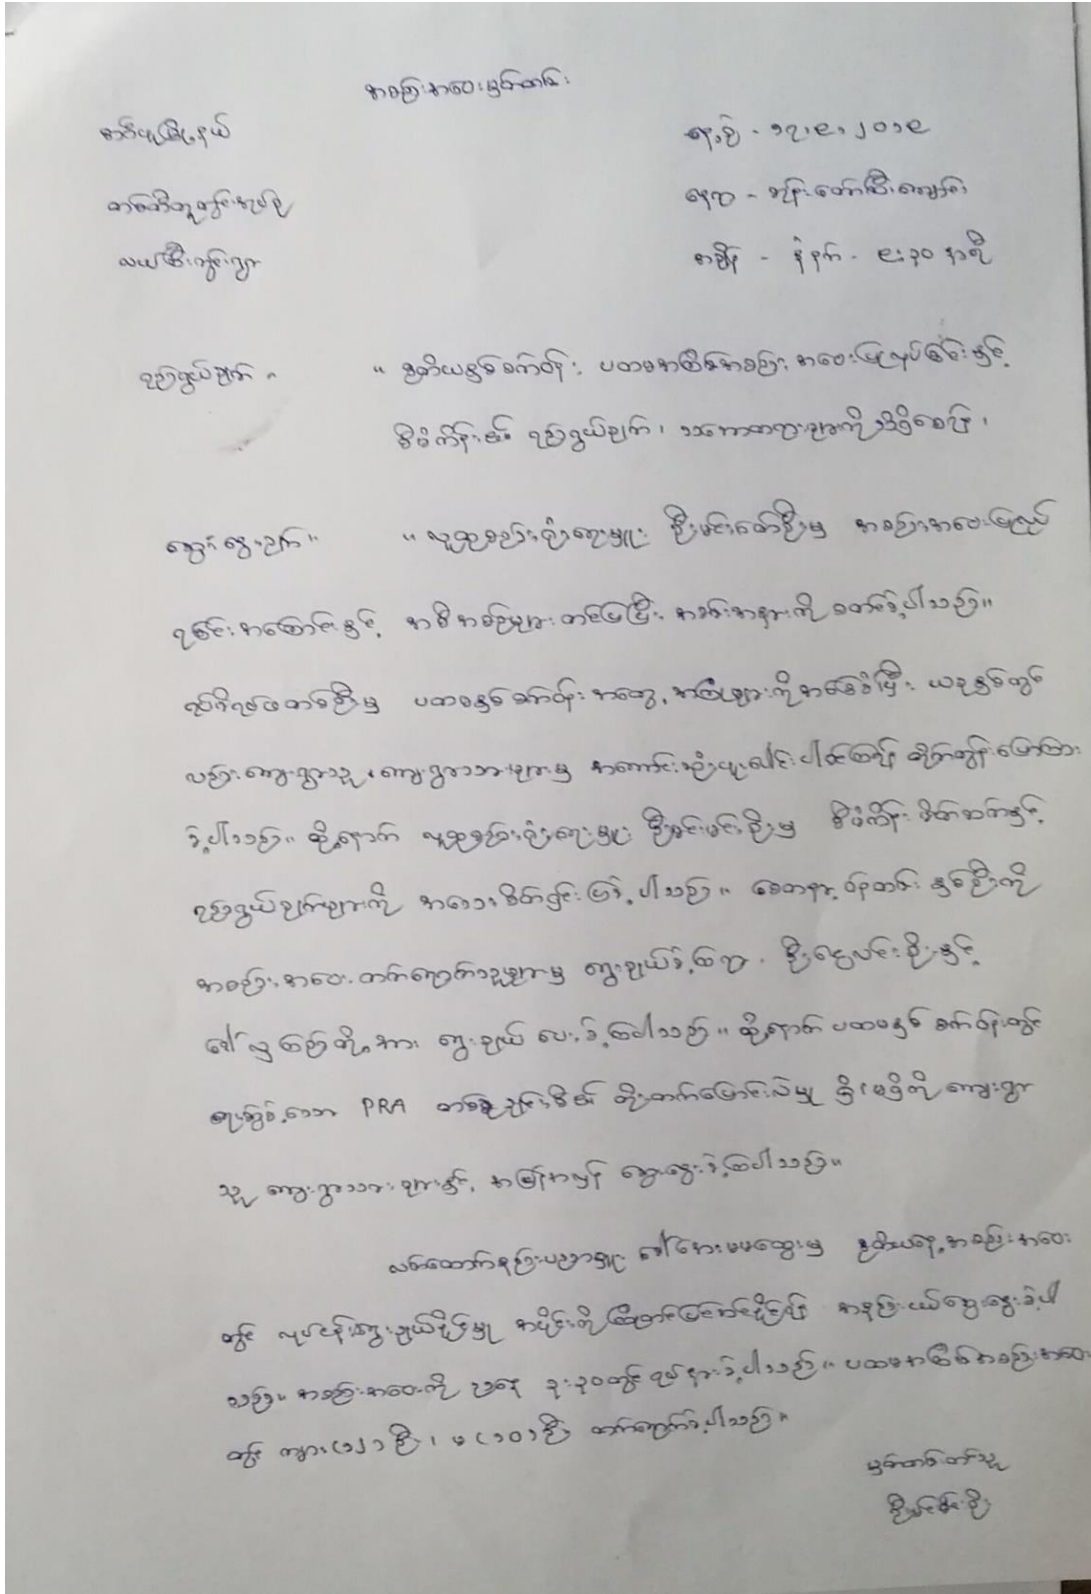 အစည်းအဝေးမှတ်တမ်း
မြို့နယ် ရက်စွဲ - ၁၇၊ ၉၊ ၂၀၁၉
ကျေးရွာအုပ်စု နေရာ - ဘုန်းတော်ကြီးကျောင်း
ရွာ အချိန် - နံနက် - ၉:၃၀ နာရီ
ရည်ရွယ်ချက် ။ ။ ဒုတိယနှစ်စက်ဝန်း, ပထမအကြိမ်အစည်းအဝေးပြုလုပ်ခြင်းနှင့်
စီမံကိန်း၏ ရည်ရွယ်ချက်၊ သဘောတရားများကိုသိရှိစေရန်၊
ဆွေးနွေးချက် ။ ။ လူထုစည်းရုံးရေးမှူး ဦးမင်းဇော်ဦးမှ အစည်းအဝေးပြုလုပ်
ရခြင်းအကြောင်းနှင့် အစီအစဉ်များ တင်ပြပြီး အခမ်းအနားကို စတင်ခဲ့ပါသည်။
ရပ်မိရပ်ဖတစ်ဦးမှ ပထမနှစ်စက်ဝန်း အတွေ့အကြုံများကိုအခြေခံပြီး ယခုနှစ်တွင်
လည်းကျေးရွာသူ၊ကျေးရွာသားများမှ အကောင်းဆုံးပူးပေါင်းပါဝင်ကြရန် တိုက်တွန်းပြောကြား
ခဲ့ပါသည်။ ထို့နောက် လူထုစည်းရုံးရေးမှူး ဦးမှ စီမံကိန်း မိတ်ဆက်နှင့်
ရည်ရွယ်ချက်များကို အသေးစိတ်ရှင်းပြခဲ့ပါသည်။ စေတနာ့ဝန်ထမ်း နှစ်ဦးကို
အစည်းအဝေးတက်ရောက်သူများမှ ရွေးချယ်ခဲ့ကြရာ၊ ဦးငွေလင်းဦးနှင့်
ဒေါ်လှကြည်တို့အား ရွေးချယ်ပေးခဲ့ကြပါသည်။ ထို့နောက် ပထမနှစ်စက်ဝန်းတွင်
ရေးဆွဲခဲ့သော PRA တစ်ခုချင်းစီ၏ တိုးတက်ပြောင်းလဲမှု ရှိ၊မရှိကို ကျေးရွာ
သူ ကျေးရွာသားများနှင့် အပြန်အလှန် ဆွေးနွေးခဲ့ကြပါသည်။
လမ်းထောက်နည်းပညာမှူး ဒေါ်အေးမမထွေးမှ ဒုတိယနေ့အစည်းအဝေး
တွင် လုပ်ငန်းရွေးချယ်နိုင်မှု အပိုင်းကိုကြိုတင်ပြင်ဆင်နိုင်ရန် အနည်းငယ်ဆွေးနွေးခဲ့ပါ
သည်။ အစည်းအဝေးကို ညနေ ၃:၃၀တွင် ရပ်နားခဲ့ပါသည်။ ပထမအကြိမ်အစည်းအဝေး
တွင် ကျား(၁၂)ဦး၊ မ(၁၀)ဦး တက်ရောက်ခဲ့ပါသည်။
မှတ်တမ်းတင်သူ